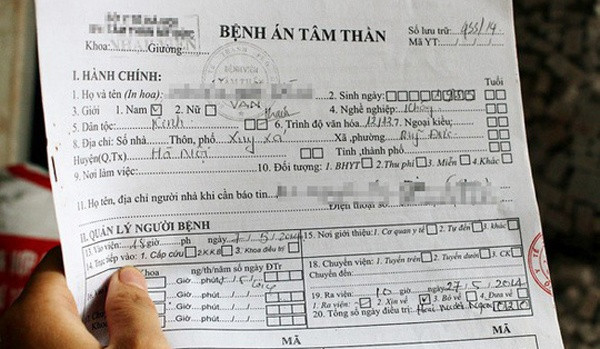 BỆNH ÁN TÂM THẦN
Số lưu trữ 955/14
Khoa: Giường:
Mã YT:
BỆNH VIỆN
I. HÀNH CHÍNH:
Tuổi
1. Họ và tên (In hoa): 2. Sinh ngày:
3. Giới 1. Nam 2. Nữ 4. Nghề nghiệp: Không
5. Dân tộc: Kinh 6. Trình độ văn hóa 12/12 7. Ngoại kiều:
8. Địa chỉ: Số nhà Thôn, phố Xã, phường
Huyện(Q,Tx) Hà Nội Tỉnh, thành phố
9. Nơi làm việc: 10. Đối tượng: 1. BHYT 2. Thu phí 3. Miễn 4. Khác
11. Họ tên, địa chỉ người nhà khi cần báo tin
Điện thoại số
II. QUẢN LÝ NGƯỜI BỆNH
13. Vào viện: giờ ph ngày
15. Nơi giới thiệu: 1. Cơ quan y tế 2. Tự đến 3. khác
14. Trực tiếp vào: 1. Cấp cứu 2. K.K.B 3. Khoa điều trị
18. Chuyển viện: 1. Tuyến trên 2. Tuyến dưới 3. CK
Khoa ng/th/năm số ngày ĐTr
Chuyển đến:
Giờ phút
19. Ra viện: 10 giờ ngày 27/5/2014
Giờ phút
1. Ra viện: 2. Xin về 3. Bỏ về 4. Đưa về
Giờ phút
20. Tổng số ngày điều trị:
MÃ MÃ